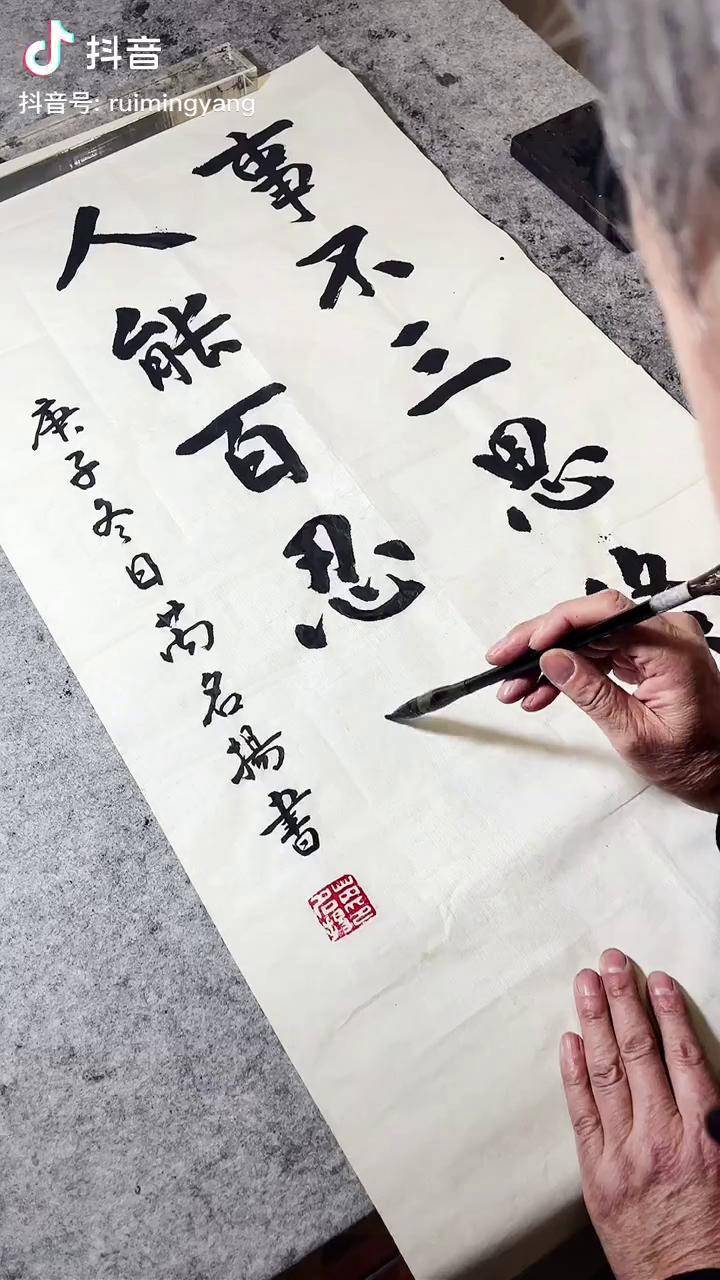 抖音
抖音号: ruimingyang
事不三思
人能百忍
庚子冬日芮名揚書